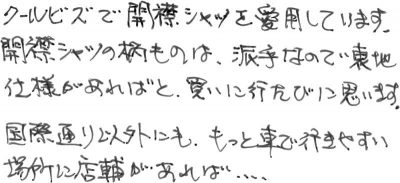 クールビズで開襟シャツを愛用しています。
開襟シャツの柄ものは、派手なので裏地
仕様があればと、買いに行くたびに思います。
国際通り以外にも、もっと車で行きやすい
場所に店舗があれば....